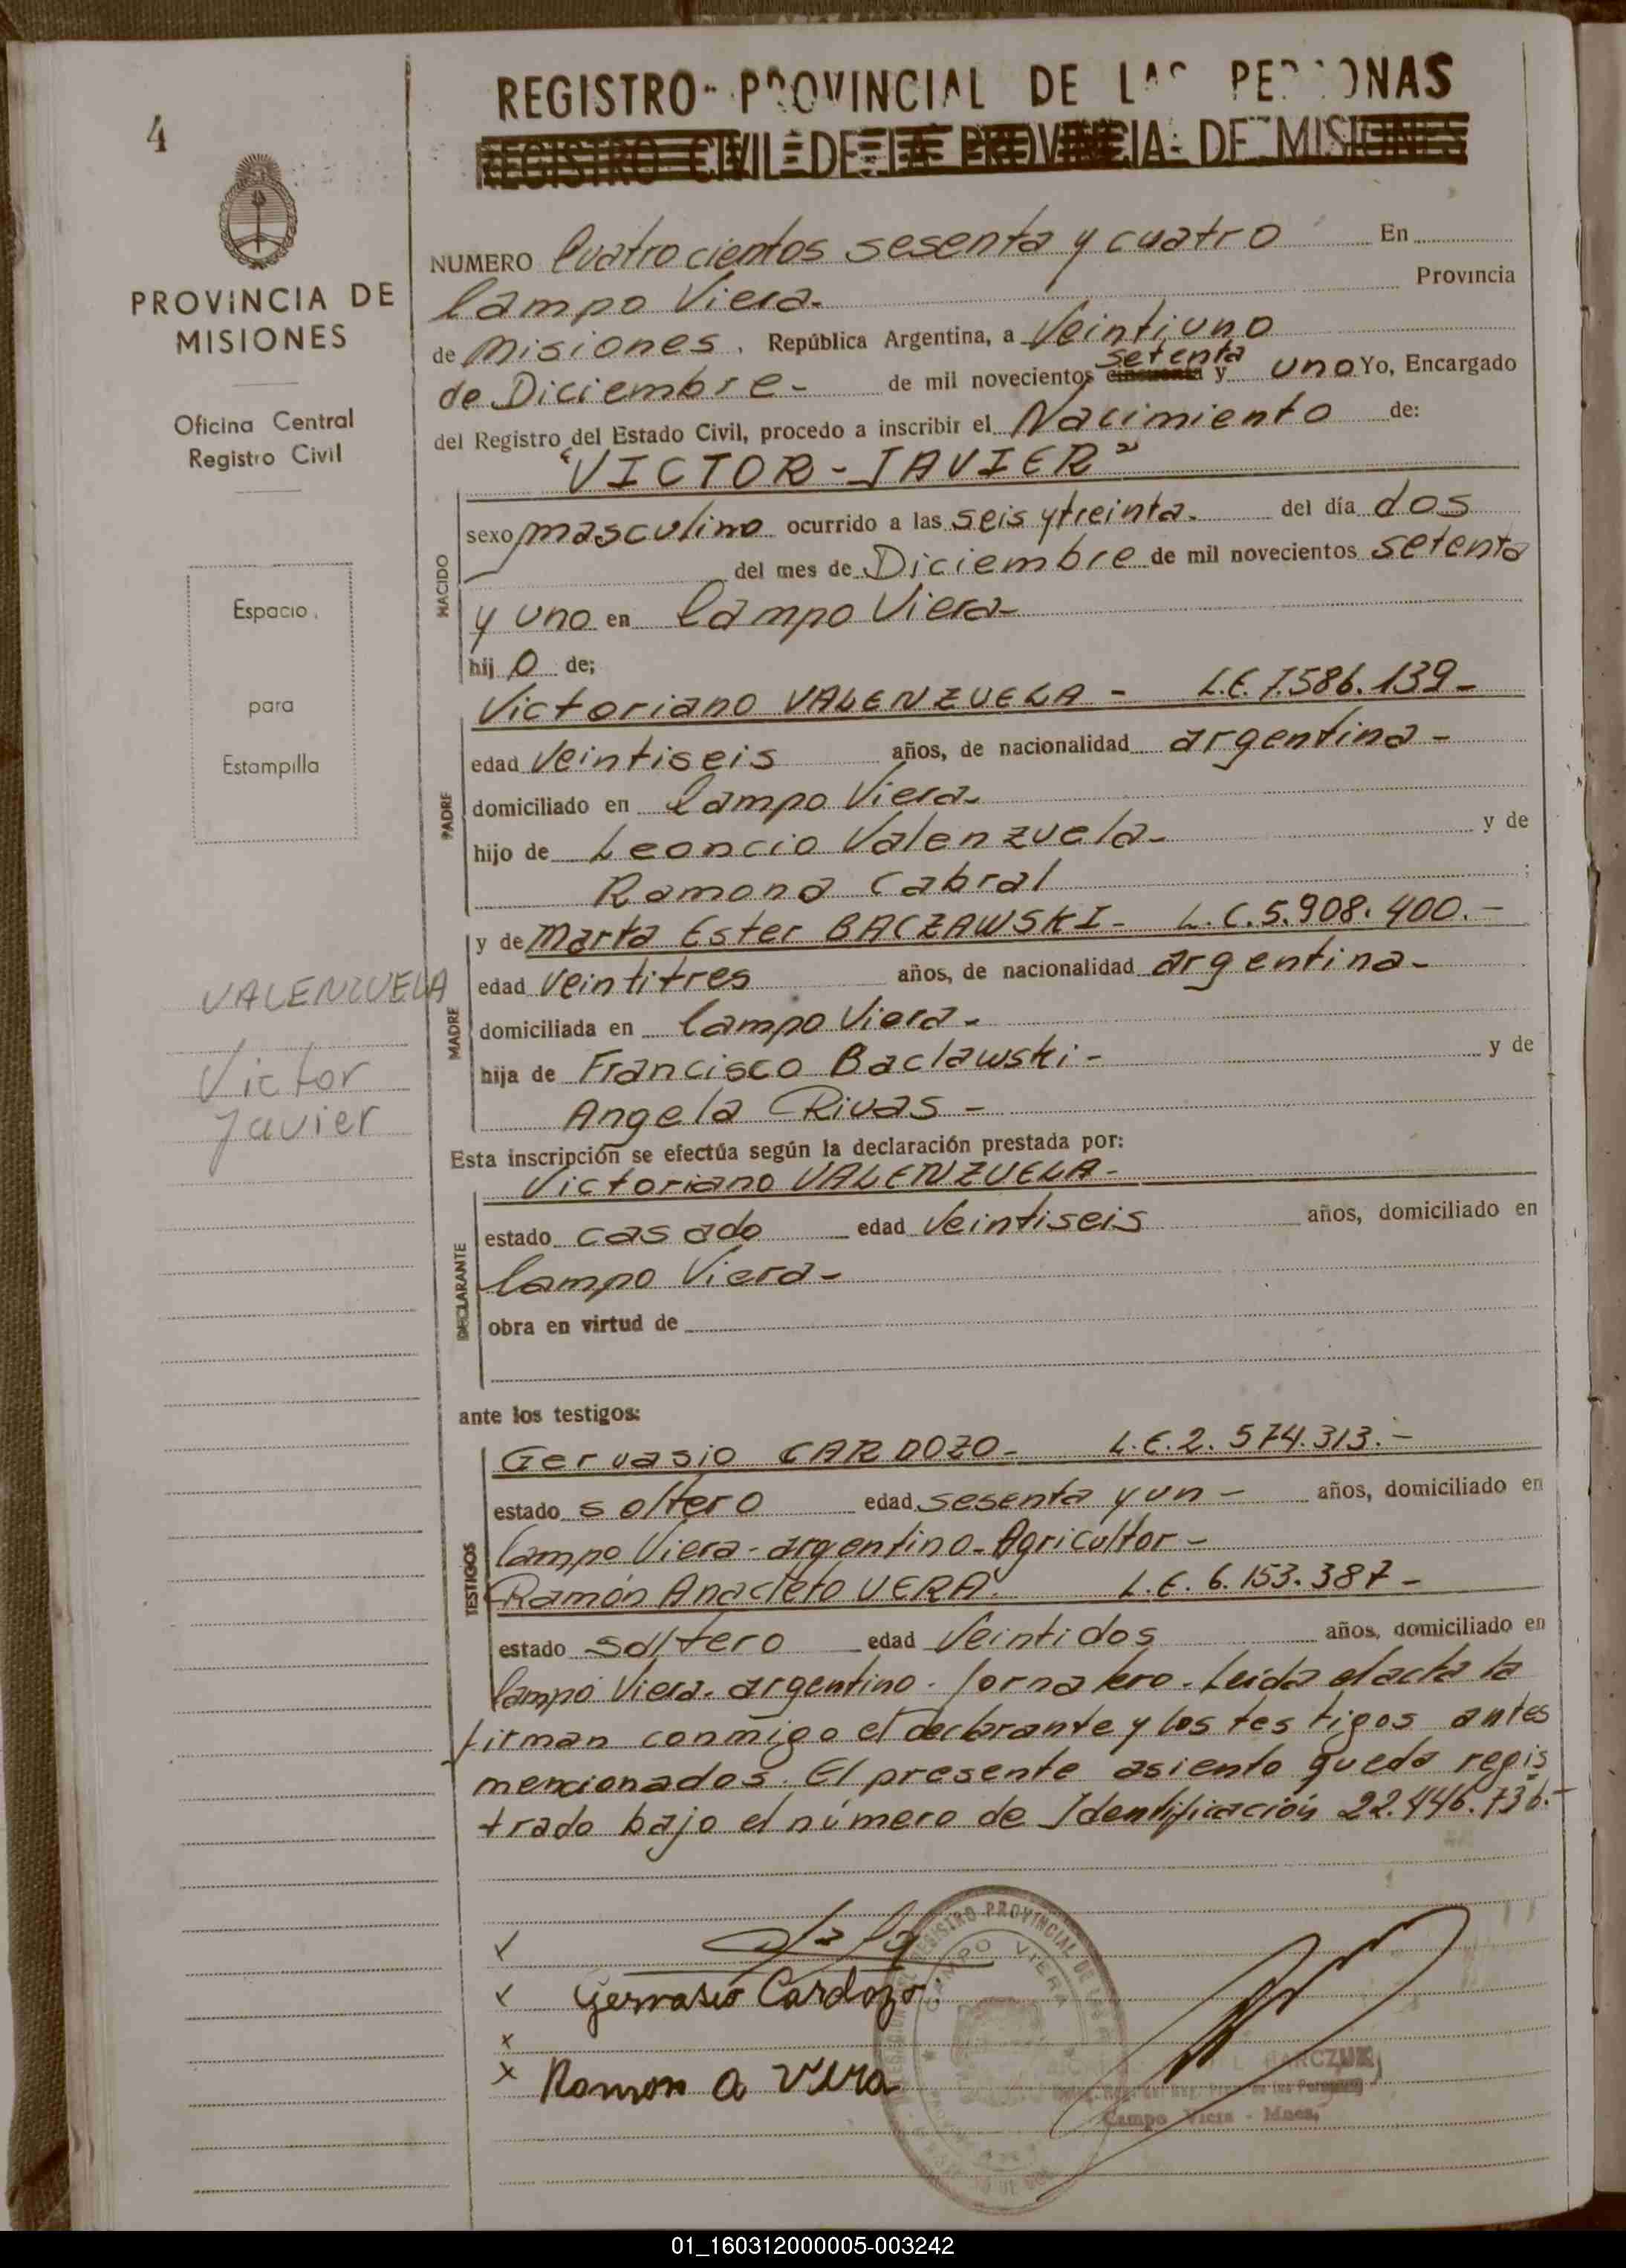 4
REGISTRO PROVINCIAL DE LAS PERSONAS
REGISTRO CIVIL DE LA PROVINCIA DE MISIONES
PROVINCIA DE
MISIONES
Oficina Central
Registro Civil
Espacio
para
Estampilla
NUMERO Cuatrocientos sesenta y cuatro En
Campo Viera- Provincia
de Misiones, República Argentina, a Veintiuno
setenta
de Diciembre- de mil novecientos cincuenta y uno Yo, Encargado
del Registro del Estado Civil, procedo a inscribir el Nacimiento de:
"VICTOR-JAVIER"
NACIDO
sexo masculino ocurrido a las seis y treinta. del día dos
del mes de Diciembre de mil novecientos setenta
y uno en Campo Viera-
hij o de;
Victoriano VALENZUELA - L.E. 7.586.139-
PADRE
edad Veintiseis años, de nacionalidad argentina-
domiciliado en Campo Viera-
hijo de Leoncio Valenzuela- y de
Ramona Cabral ;
y de Marta Ester BACZAWSKI- L.C.5.908.400.-
MADRE
edad veintitres años, de nacionalidad argentina-
domiciliada en Campo Viera-
hija de Francisco Baclawski- y de
Angela Rivas-
VALENZUELA
Victor
Javier
Esta inscripción se efectúa según la declaración prestada por:
Victoriano VALENZUELA-
DECLARANTE
estado casado edad Veintiseis años, domiciliado en
Campo Viera-
obra en virtud de
ante los testigos:
Gervasio CARDOZO- L.E.2.574.313.-
TESTIGOS
estado soltero edad sesenta y un- años, domiciliado en
Campo Viera-argentino-Agricultor-
Ramón Anacleto VERA. L.E. 6.153.387-
estado soltero edad Veintidos años, domiciliado en
Campo Viera. argentino. Jornalero. Leida el acta la
firman conmigo el declarante y los testigos antes
mencionados. El presente asiento queda regis
trado bajo el número de Identificación 22.446.736.-
Gervasio Cardozo
Ramon A Vera
REGISTRO PROVINCIAL DE LAS
CAMPO VIERA
Campo Viera - Mnes.
01_160312000005-003242